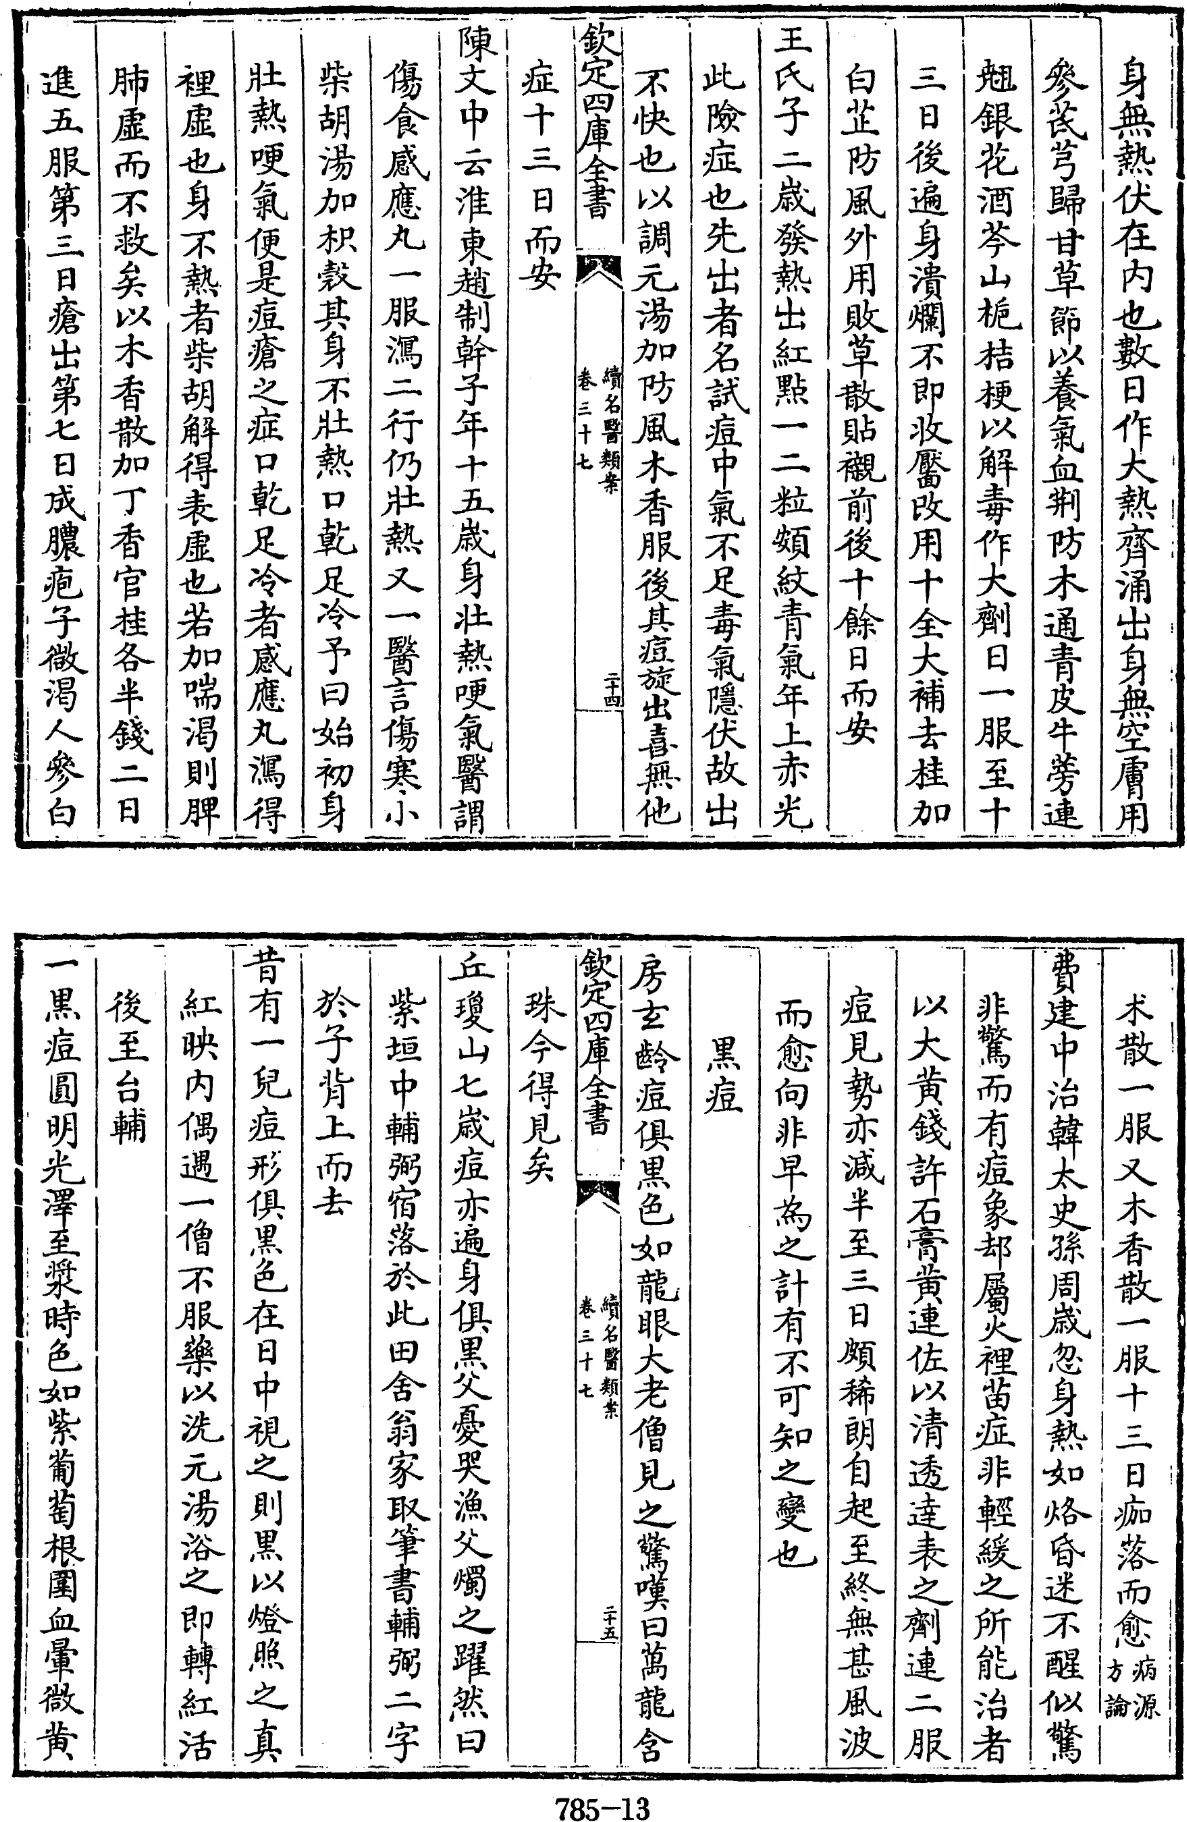 身無熱伏在内也數日作大熱齊涌出身無空膚用
參芪芎歸甘草節以養氣血荆防木通青皮牛蒡連
翹銀花酒芩山梔桔梗以解毒作大劑日一服至十
三日後遍身潰爛不即收靨改用十全大補去桂加
白芷防風外用敗草散貼襯前後十餘日而安
王氏子二歲發熱出紅點一二粒頰紋青氣年上赤光
此險症也先出者名試痘中氣不足毒氣隱伏故出
不快也以調元湯加防風木香服後其痘旋出喜無他
欽定四庫全書
續名醫類案
卷三十七
二十四
症十三日而安
陳文中云淮東趙制幹子年十五歲身壯熱哽氣醫謂
傷食感應丸一服瀉二行仍壯熱又一醫言傷寒小
柴胡湯加枳殼其身不壯熱口乾足冷予曰始初身
壯熱哽氣便是痘瘡之症口乾足冷者感應丸瀉得
裡虛也身不熱者柴胡解得表虛也若加喘渴則脾
肺虛而不救矣以木香散加丁香官桂各半錢二日
進五服第三日瘡出第七日成膿疱子微渴人參白
朮散一服又木香散一服十三日痂落而愈病源
方論
費建中治韓太史孫周歲忽身熱如烙昏迷不醒似驚
非驚而有痘象却屬火裡苗症非輕緩之所能治者
以大黄錢許石膏黄連佐以清透達表之劑連二服
痘見勢亦減半至三日頗稀朗自起至終無甚風波
而愈向非早為之計有不可知之變也
黒痘
房玄齡痘俱黒色如龍眼大老僧見之驚嘆曰萬龍含
欽定四庫全書
續名醫類案
卷三十七
二十五
珠今得見矣
丘瓊山七歲痘亦遍身俱黒父憂哭漁父燭之躍然曰
紫垣中輔弼宿落於此田舍翁家取筆書輔弼二字
於子背上而去
昔有一兒痘形俱黒色在日中視之則黒以燈照之真
紅映内偶遇一僧不服藥以洗元湯浴之即轉紅活
後至台輔
一黒痘圓明光澤至漿時色如紫葡萄根圍血暈微黄
785-13